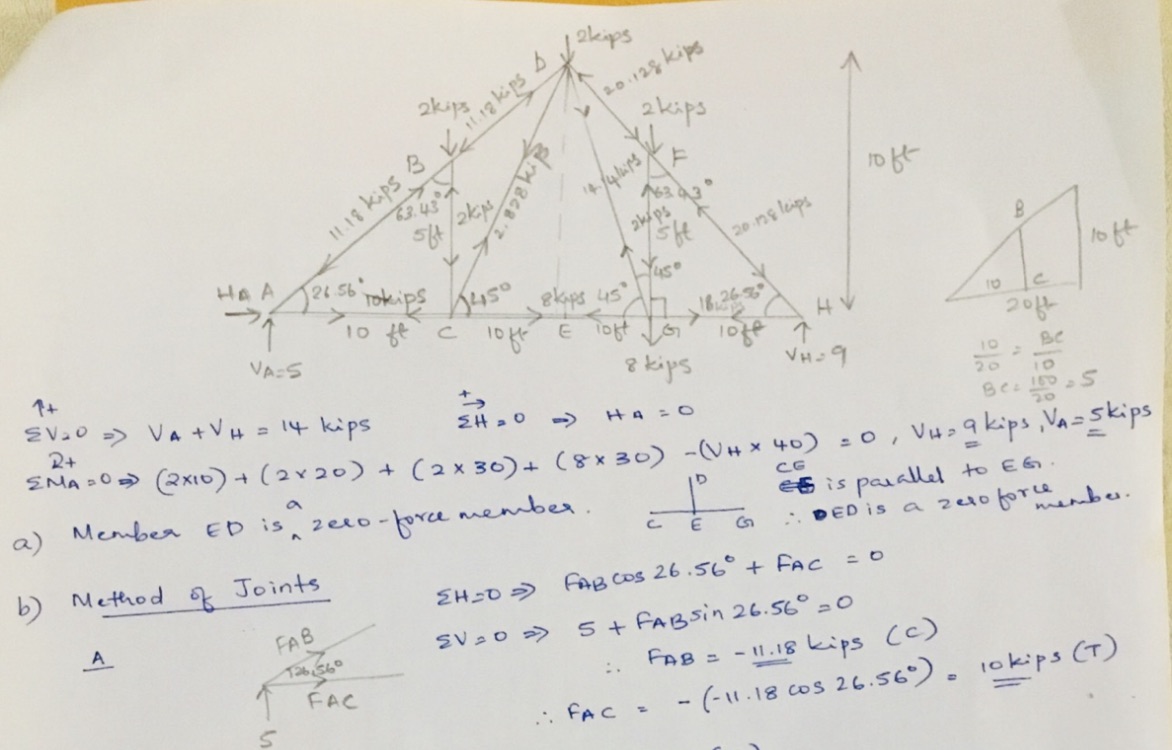 2kips
D
20.128 kips
11.18 kips
2kips
2kips
10ft
B
F
11.18 kips
63.43°
2kips
5ft
2.828 kips
2kips
5ft
63.43°
20.128 kips
45°
B
10ft
10
C
20ft
HA A
26.56°
10kips
45°
8kips
45°
26.56°
H
10 ft
C
10ft
E
10ft
G
10ft
VA=5
8 kips
VH=9
10/20 = BC/10
BC = 100/20 = 5
↑+
ΣV=0 ⇒ VA + VH = 14 kips
+→
ΣH=0 ⇒ HA = 0
ΣMA=0 ⇒ (2×10) + (2×20) + (2×30) + (8×30) - (VH × 40) = 0, VH=9 kips, VA=5kips
a) Member ED is a zero-force member.
D
C E G
CE is parallel to EG.
∴ ED is a zero force member.
b) Method of Joints
ΣH=0 ⇒ FAB cos 26.56° + FAC = 0
A
FAB
26.56°
FAC
5
ΣV=0 ⇒ 5 + FAB sin 26.56° = 0
∴ FAB = -11.18 kips (C)
∴ FAC = -(-11.18 cos 26.56°) = 10kips (T)